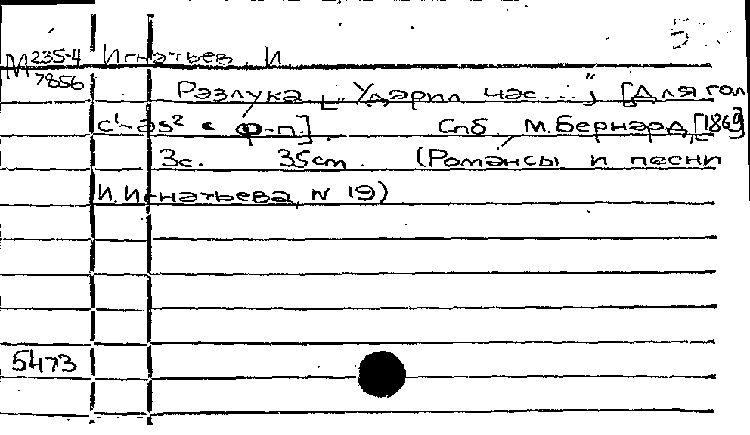 М 235-4
7856
Игнатьев, И.
Разлука [„Ударил час...“; [Для гол.
c¹-as² с ф-п.]. Спб., М. Бернард, [1869]
3с. 35cm. (Романсы и песни
И. Игнатьева, N 19)
5473